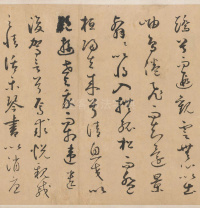 矯首而遐觀雲無心以出
岫鳥倦飛而知還景
翳翳以將入撫孤松而盤
桓歸去來兮請息交以
絕遊世與我而相違
復駕言兮焉求悅親戚
之情話樂琴書以消憂